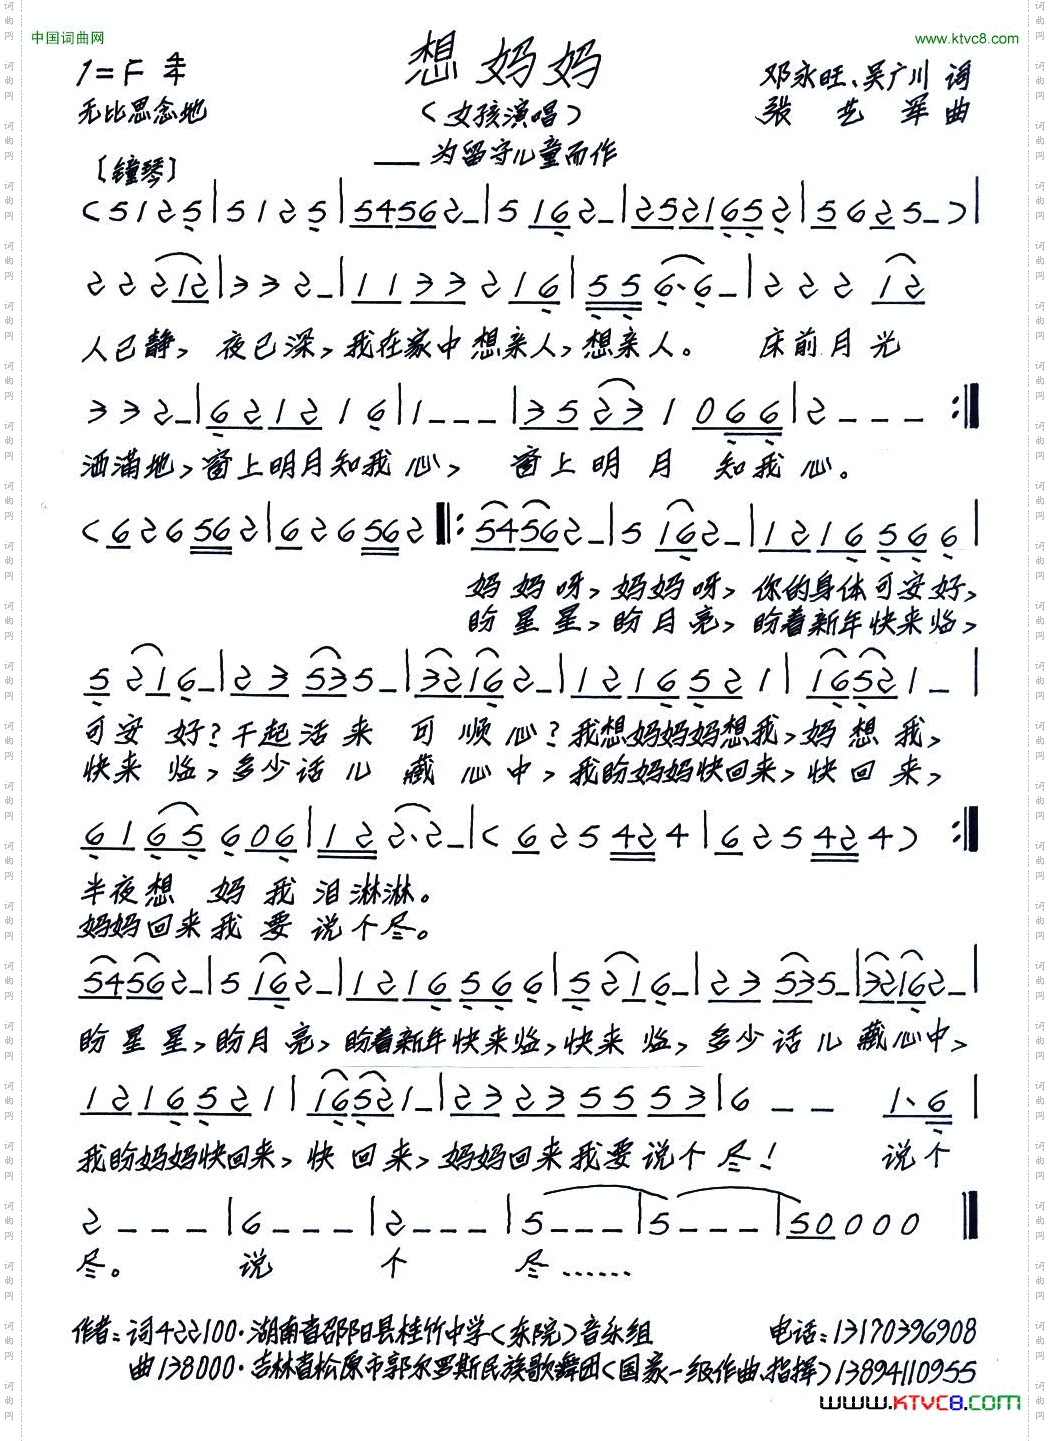 中国词曲网
www.ktvc8.com
1=F 4/4
想妈妈
邓永旺、吴广川 词
无比思念地
(女孩演唱)
张艺军 曲
——为留守儿童而作
[钟琴]
(5 1 2 5|5 1 2 5|5 4 5 6 2 –|5 1 6 2 –|2 5 2 1 6 5 2|5 6 2 5 –)|
2 2 2 1 2|3 3 2 –|1 1 3 3 2 1 6|5 5 6· 6 –|2 2 2 1 2
人已静, 夜已深, 我在家中想亲人, 想亲人。 床前月光
3 3 2 –|6 2 1 2 1 6|1 – – –|3 5 2 3 1 0 6 6|2 – – – :‖
洒满地, 窗上明月知我心, 窗上明月 知我心。
(6 2 6 5 6 2|6 2 6 5 6 2 ‖: 5 4 5 6 2 –|5 1 6 2 –|1 2 1 6 5 6 6|
妈妈呀, 妈妈呀, 你的身体可安好,
盼星星, 盼月亮, 盼着新年快来临,
5 2 1 6 –|2 3 5 3 5 –|3 2 1 6 2 –|1 2 1 6 5 2 1|1 6 5 2 1 –|
可安好? 干起活来 可顺心? 我想妈妈妈想我, 妈想我,
快来临, 多少话儿 藏心中, 我盼妈妈快回来, 快回来,
6 1 6 5 6 0 6|1 2 2· 2 –|(6 2 5 4 2 4|6 2 5 4 2 4) :‖
半夜想 妈我泪淋淋。
妈妈回来我要说个尽。
5 4 5 6 2 –|5 1 6 2 –|1 2 1 6 5 6 6|5 2 1 6 –|2 3 5 3 5 –|3 2 1 6 2 –|
盼星星, 盼月亮, 盼着新年快来临, 快来临, 多少话儿藏心中,
1 2 1 6 5 2 1|1 6 5 2 1 –|2 3 2 3 5 5 5 3|6 – – 1· 6|
我盼妈妈快回来, 快回来, 妈妈回来我要说个尽! 说个
2 – – –|6 – – –|2 – – –|5 – – –|5 – – –|5 0 0 0 0‖
尽。 说 个 尽……
作者:词422100·湖南省邵阳县桂竹中学(东院)音乐组 电话:13170396908
曲138000·吉林省松原市郭尔罗斯民族歌舞团(国家一级作曲、指挥)13894110955
www.KTVC8.COM